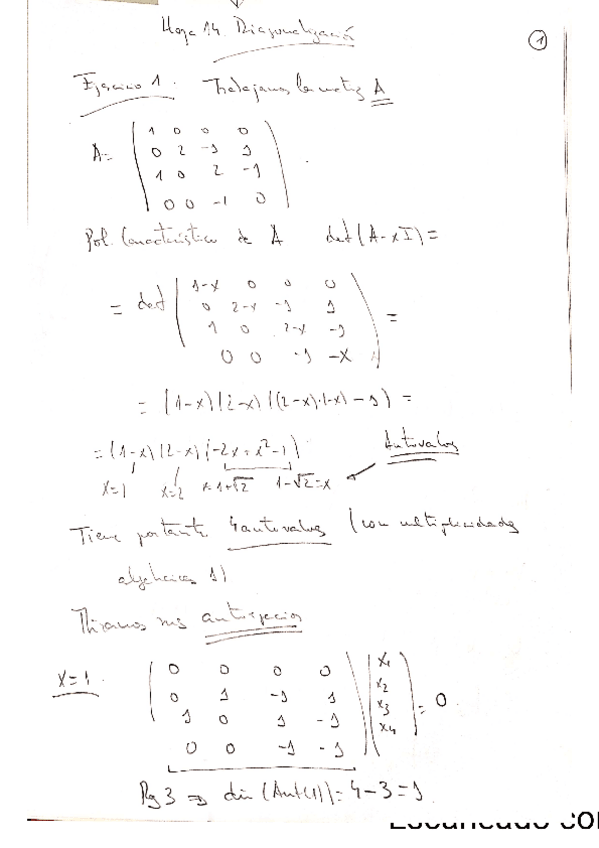 Hoja 14. Diagonalización
1
Ejercicio 1. Trabajamos la matriz A
A= ( 1 0 0 0
0 2 -1 1
1 0 2 -1
0 0 -1 0 ) .
Pol. Característico de A det (A-xI) =
= det ( 1-x 0 0 0
0 2-x -1 1
1 0 2-x -1
0 0 -1 -x ) =
= (1-x)(2-x)((2-x)·(-x)-1) =
= (1-x)(2-x)(-2x+x²-1)
Autovalores
x=1 x=2 x=1+√2 1-√2=x
Tiene por tanto 4 autovalores (con multiplicidades
algebraicas 1)
Miramos sus autoespacios
x=1. ( 0 0 0 0
0 1 -1 1
1 0 1 -1
0 0 -1 -1 ) ( x1
x2
x3
x4 ) = 0
Rg 3 ⇒ dim (Aut(1)) = 4-3 = 1